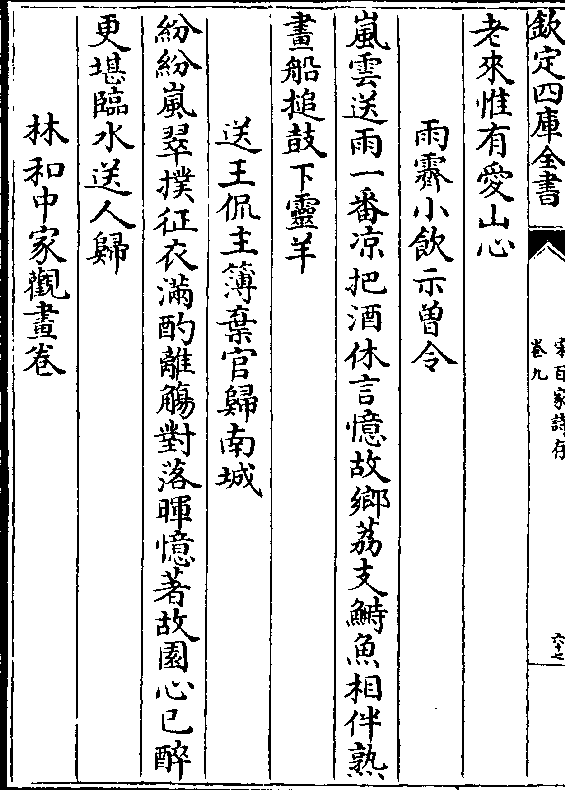 欽定四庫全書
宋百家詩存
卷九
六十七
老來惟有愛山心
雨霽小飲示曾令
嵐雲送雨一番凉把酒休言憶故鄉荔支鰣魚相伴熟
畫船搥鼓下靈羊
送王侃主簿棄官歸南城
紛紛嵐翠撲征衣滿酌離觴對落暉憶著故園心已醉
更堪臨水送人歸
林和中家觀畫卷